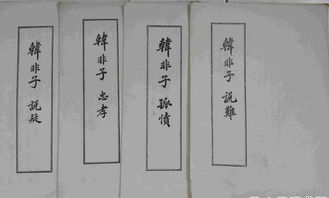 韓非子 說疑
韓非子 忠孝
韓非子 孤憤
韓非子 說難